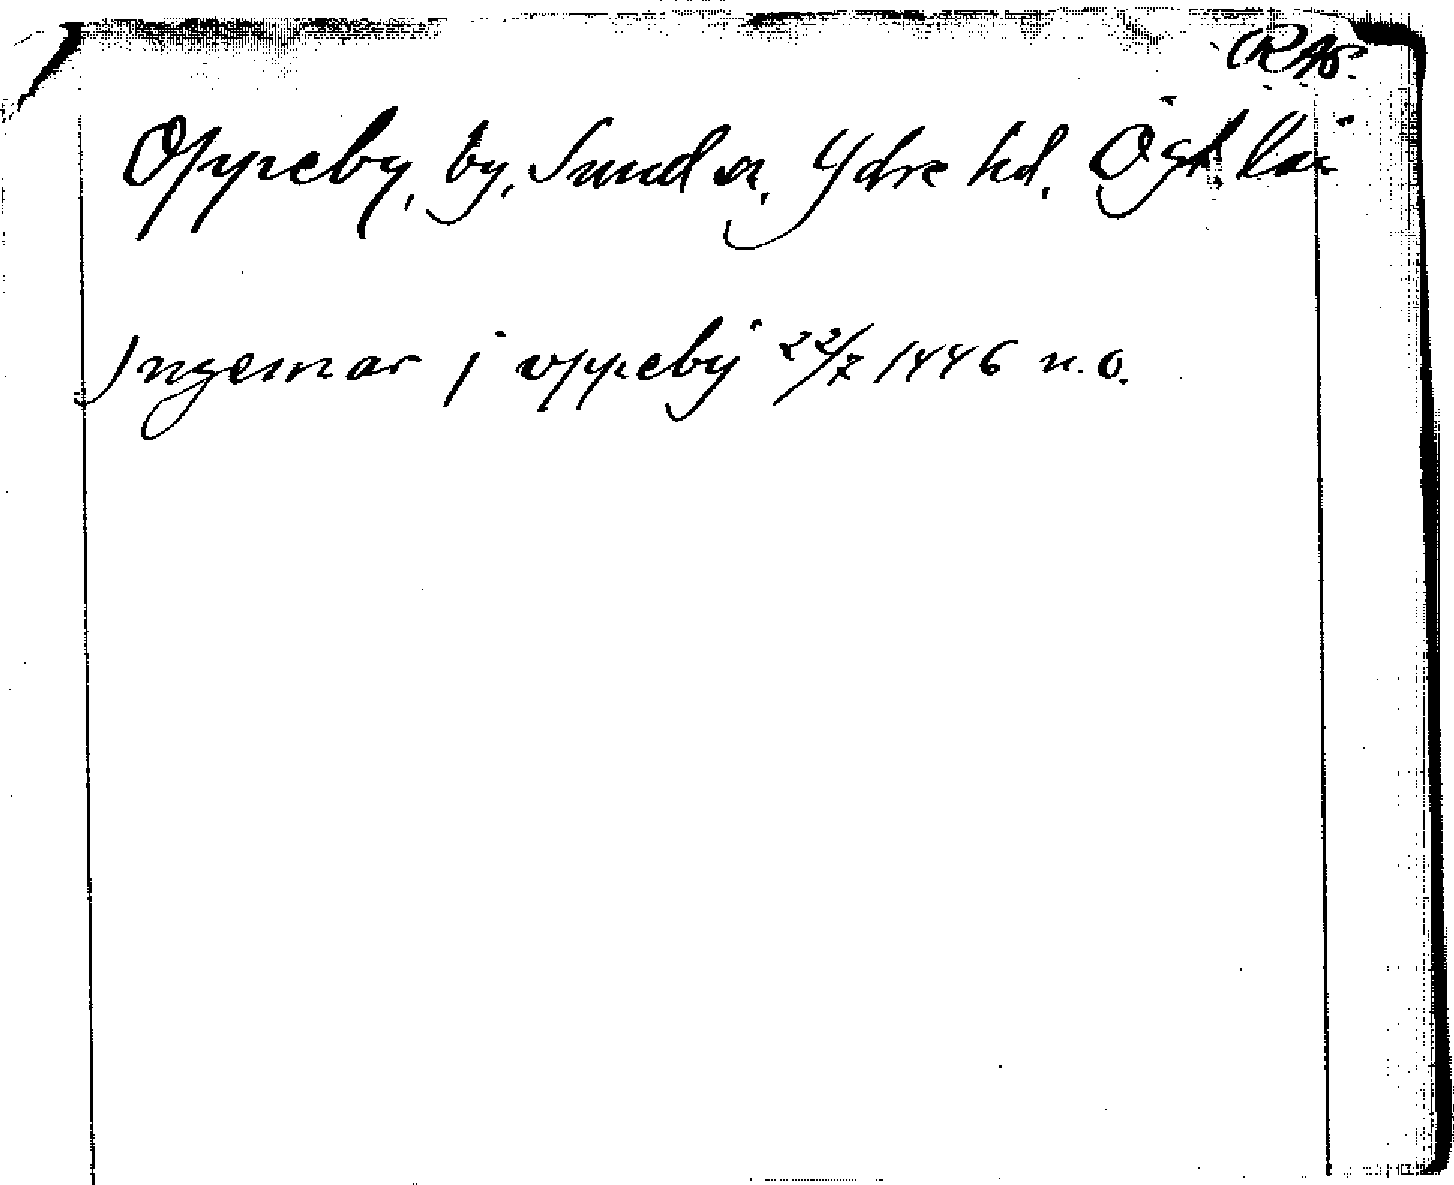 Oppeby, by, Sund sn, Ydre hd, Ög. län
Ingemar j oppeby 22/7 1446 n.o.